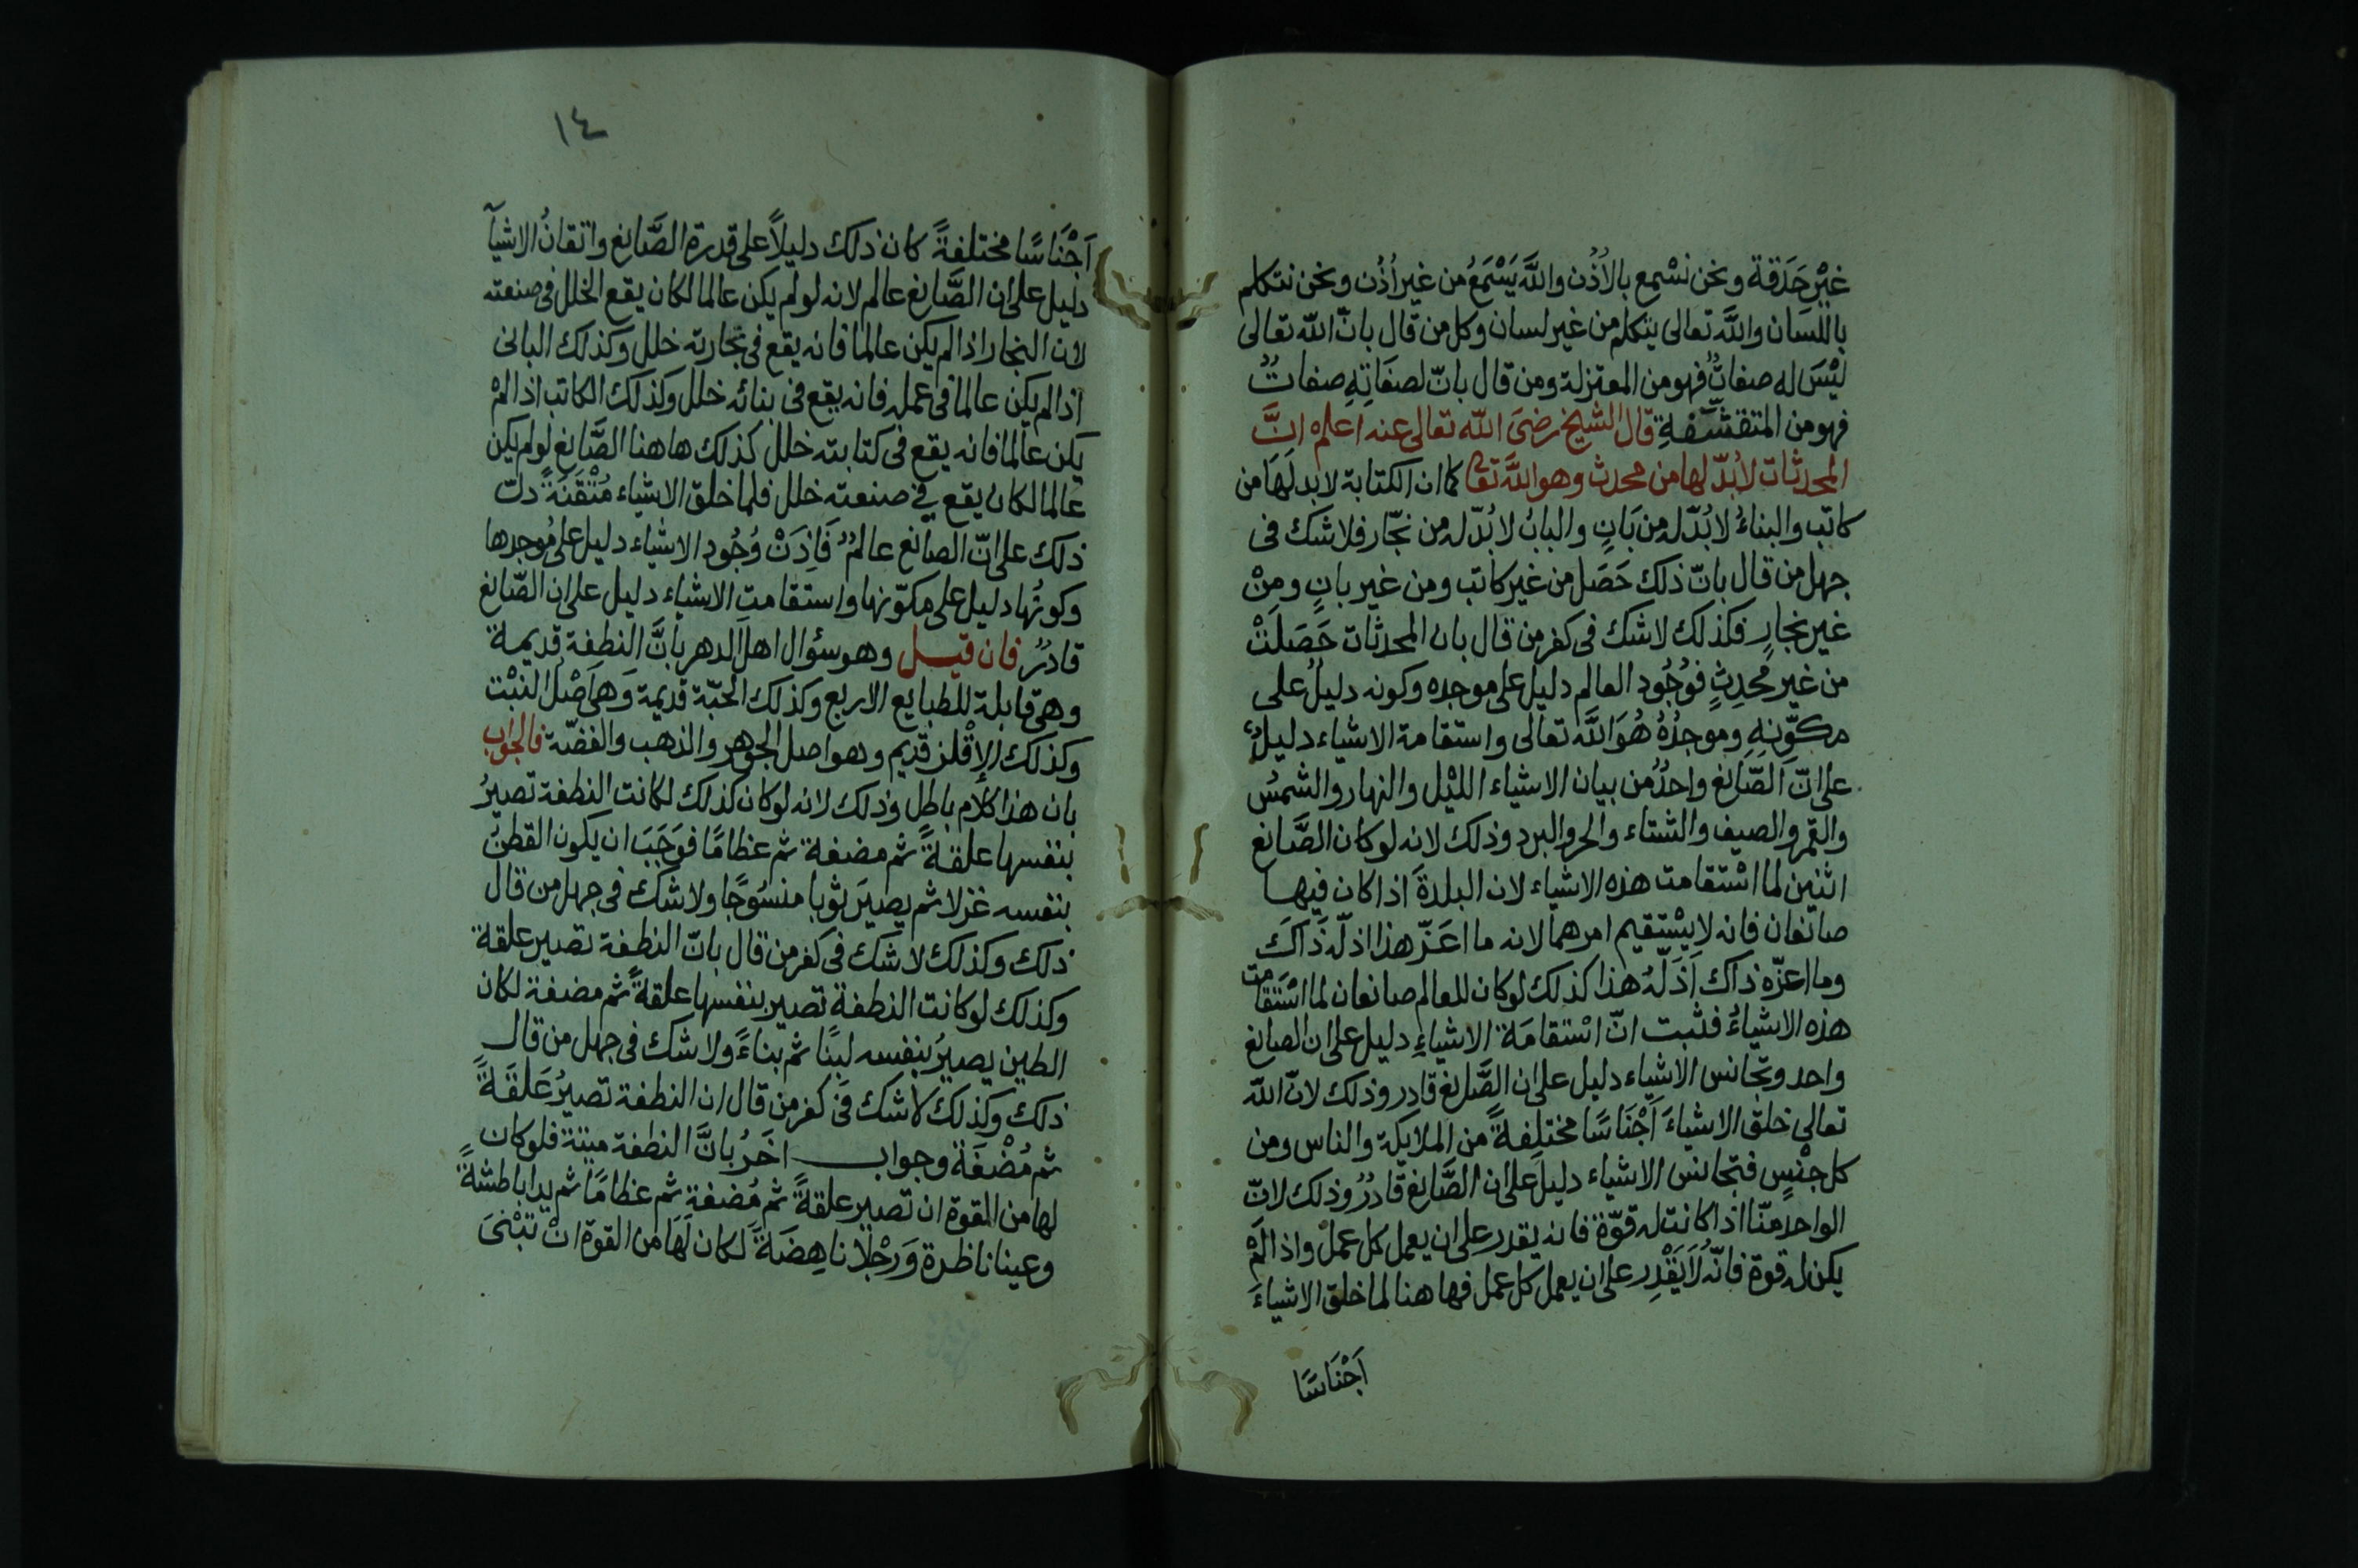 غيْر حَدَقة ونحن نسْمع بالاُذُن واللّٰه يَسْمَعُ من غير اُذُن ونحن نتكلم
باللّسَان واللّٰه تعالى يتكلم من غير لسان وكل من قال بانّ اللّٰه تعالى
ليْسَ له صفاتٌ فهو من المعتزلة ومن قال بانّ لصفَاتِهِ صفاتٌ
فهو من المتقشّفةِ قال الشيخ رضىَ اللّٰه تعالى عنه اعلم انَّ
المحدثات لابُدّ لها من محدث وهو اللّٰه تعا كما ان الكتابة لابد لَهَا من
كاتب والبناءُ لابُدّ له من بَانٍ والبابُ لابُدّ له من نجّار فلاشك فى
جهل من قال بانّ ذلك حَصَل من غير كاتب ومن غير بانٍ ومنْ
غير نجارٍ فكذلك لاشك فى كفر من قال بان المحدثات حَصَلَتْ
من غير مُحدِثٍ فوُجُود العالم دليل على موجده وكونه دليلُ على
مكوّنِهِ وموجدُهُ هُوَ اللّٰه تعالى واستقامة الاشياء دليلٌ
على انّ الصّانع واحدٌ من بيان الاشياء الليْل والنهار والشمسُ
والقمر والصيف والشتاء والحر والبرد وذلك لانه لوكان الصَّانع
اثنين لما اسْتقامت هذه الاشياء لان البلدةَ اذا كان فيها
صانعان فانه لايسْتقيم امرهما لانه ما اعَزّ هذا اذلّه ذَاكَ
وما اعزّه ذاك اَذَلّهُ هذا كذلك لوكان للعالم صانعان لما اسْتَقامت
هذه الاشياءُ فثبت انّ اسْتقامَة الاشياءِ دليل على ان الصانع
واحد وتجانس الاشياء دليل على ان الصَّانع قادر وذلك لانّ اللّٰه
تعالى خلق الاشياءَ اَجْنَاسًا مختلِفةً من الملايكة والناس ومن
كل جنْسٍ فتجانس الاشياء دليل على ان الصَّانع قادرٌ وذلك لانّ
الواحد منّا اذا كانت له قوّة فانه يقدر على ان يعمل كل عمل واذا لَمْ
يكن له قوة فانّه لاَيَقْدِر على ان يعمل كل عمل فها هنا لما خلق الاشياءَ
اَجْنَاسًا
١٤
اَجْنَاسًا مختلفةً كان ذلك دليلاً على قدرة الصَّانع واتقانُ الاشيآ
دليل على ان الصَّانع عالم لانه لولم يكن عالما لكان يقع الخلل فى صنعته
لان النجار اذا لم يكن عالما فانه يقع فى نجارته خلل وكذلك البانى
اذا لم يكن عالما فى عمله فانه يقع فى بنائه خلل وكذلك الكاتب اذا لمْ
يكن عالما فانه يقع فى كتابته خلل كذلك هاهنا الصَّانع لولم يكن
عالما لكان يقع فى صنعته خلل فلما خلق الاشياء مُتْقَنَةً دلّ
ذلك على انّ الصانع عالمٌ فَاِذَنْ وُجُود الاشياء دليل على مُوجدها
وكونُها دليل على مكوّنها واستقامت الاشياء دليل على ان الصّانع
قادرٌ فان قيل وهو سؤال اهل الدهر بانَّ النطفة قديمة
وهى قابلة للطبايع الاربع وكذلك الحبّة قديمة وَهى اَصْل النبْت
وكذلك الاِقْلز قديم وهو اصل الجوهر والذهب والفضّة فالجواب
بان هذا كلام باطل وذلك لانه لوكان كذلك لكانت النطفة تصيرُ
بنفسها علقةً ثم مضغة ثم عظامًا فوَجَبَ ان يكون القطنُ
بنفسه غزلا ثم يصيرَ ثوبا منسُوجًا ولاشك فى جهل من قال
ذلك وكذلك لاشك فى كفر من قال بانّ النطفة تصير علقة
وكذلك لوكانت النطفة تصير بنفسها علقةً ثم مضغة لكان
الطين يصيرُ بنفسه لبنًا ثم بناءً ولاشك فى جهل من قال
ذلك وكذلك لاشك فى كفر من قال ان النطفة تصيرُ عَلقَةً
ثم مُضْغَة وجواب اخَرُ بانَّ النطفة ميتة فلوكان
لها من القوة ان تصير علقةً ثم مُضغة ثم عظامًا ثم يدا باطشةً
وعينا ناظرة وَرجْلاً ناهِضَةً لكان لَهَا من القوة انْ تبْنىَ